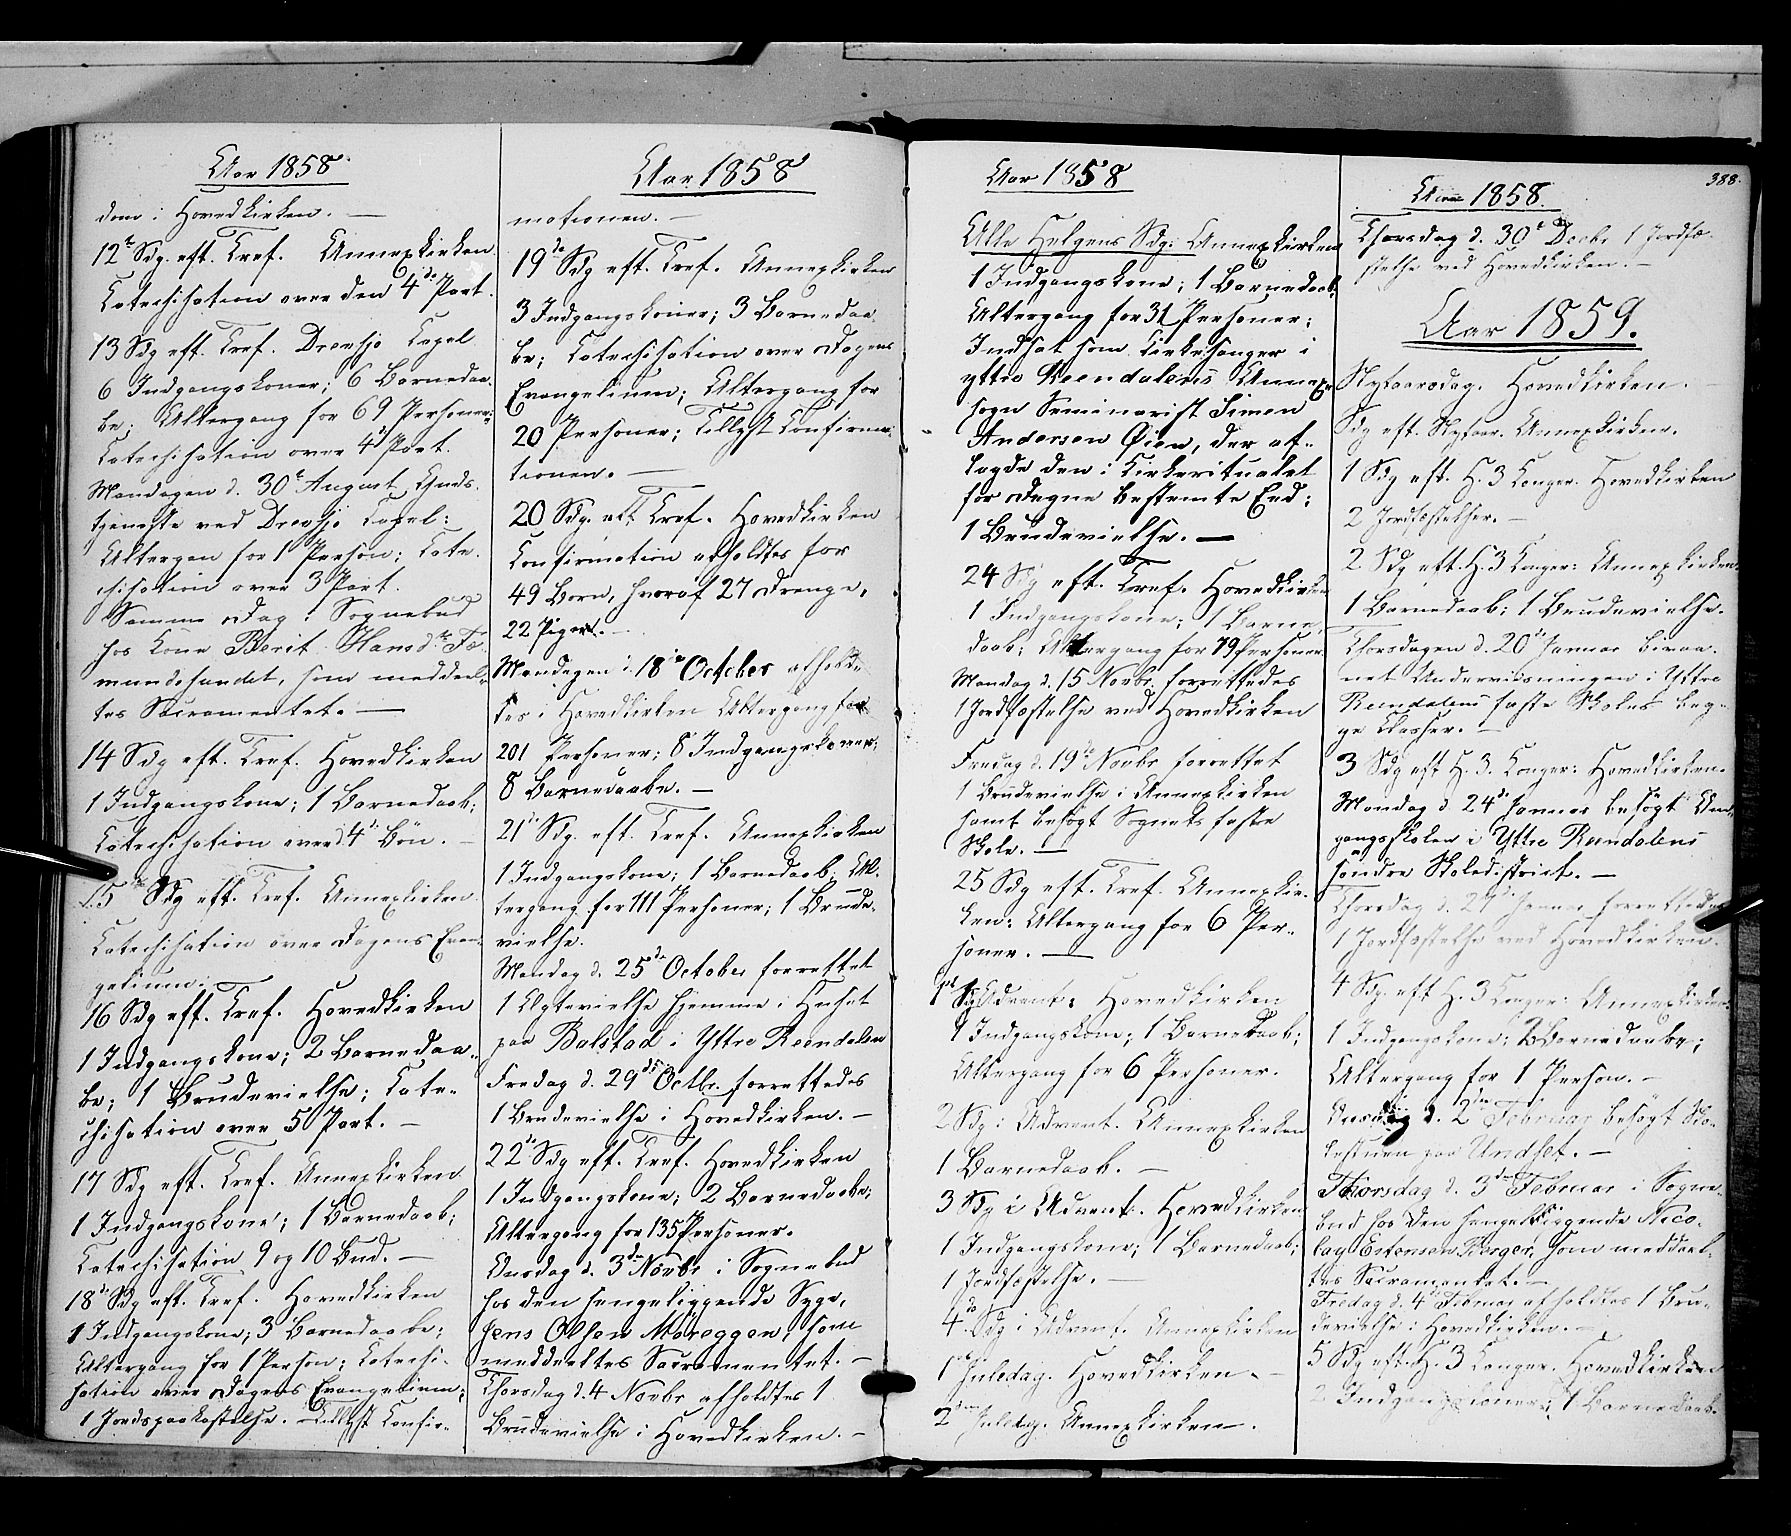 Aar 1858.
dom i Hovedkirken. —
12te Sdg. eft. Tref. Annexkirken
Catechisation over den 4de Part.
13 Sdg eft. Tref. Drevsjø Capel
6 Indgangskoner; 6 Barnedaa-
be; Altergang for 69 Personer;
Catechisation over 4de Part.
Mandagen d. 30te August Guds-
tjeneste ved Drevsjø Capel:
Altergan for 1 Person; Cate-
chisation over 3 Part.
Samme Dag i Sognebud
hos Kone Berit Hansdtr Fæ-
mundshandet, som meddeel-
tes Sacramentet. —
14 Sdg eft. Tref. Hovedkirken
1 Indgangskone; 1 Barnedaab;
Catechisation over d 4de Bøn. —
15de Sdg eft. Tref. Annexkirken
Catechisation over Dagens Evan-
gelium. —
16 Sdg eft. Tref. Hovedkirken
1 Indgangskone; 2 Barnedaa-
be; 1 Brudevielse; Cate-
chisation over 5 Part. —
17 Sdg eft. Tref. Annexkirken
1 Indgangskone; 1 Barnedaab;
Catechisation 9 og 10 Bud. —
18de Sdg eft. Tref. Hovedkirken
1 Indgangskone; 3 Barnedaabe;
Altergang for 1 Person; Catechi-
sation over Dagens Evangelium;
1 Jordspaakastelse. — Tillyst Confir-
Aar 1858
mationen. —
19de Sdg eft. Tref. Annexkirken
3 Indgangskoner; 3 Barnedaa-
be; Catechisation over Dagens
Evangelium; Altergang for
20 Personer; Tillyst Confirma-
tionen. —
20 Sdg. eft Tref. Hovedkirken
Confirmation afholdtes for
49 Børn, hvoraf 27 Drenge,
22 Piger. —
Mandagen d. 18de October afhold-
tes i Hovedkirken Altergang for
201 Personer; 8 Indgangskoner;
8 Barnedaabe. —
21de Sdg. eft. Tref. Annexkirken
1 Indgangskone; 1 Barnedaab; Al-
tergang for 111 Personer; 1 Brude-
vielse.
Mandag d. 25de October forrettet
1 Ægtevielse hjemme i Huset
paa Bolstad i Yttre Reendalen
Fredag d. 29de Octbr. forrettedes
1 Brudevielse i Hovedkirken. —
22de Sdg eft. Tref. Hovedkirken
1 Indgangskone; 2 Barnedaabe;
Altergang for 135 Personer.
Onsdag d. 3de Novbr i Sognebud
hos den sengeliggende Syge,
Jens Olsen Møreggen, som
meddeeltes Sacramentet. —
Thorsdag d. 4 Novbr afholdtes 1
Brudevielse i Hovedkirken. —
Aar 1858
Alle Helgens Sdg: Annexkirken
1 Indgangskone; 1 Barnedaab;
Altergang for 31 Personer;
Indsat som Kirkesanger i
yttre Reendalens Annex-
sogn Seminarist Simen
Andersen Øien, der af-
lagde den i Kirkeritualet
for Degne bestemte Eed;
1 Brudevielse. —
24 Sdg eft. Tref. Hovedkirken
1 Indgangskone; 1 Barne-
daab; Altergang for 79 Personer
Mandag d. 15 Novbr. forrettedes
1 Jordfæstelse ved Hovedkirken
Fredag d. 19de Novbr forrettet
1 Brudevielse i Annexkirken
samt besøgt Sognets faste
Skole. —
25 Sdg eft. Tref. Annexkir-
ken: Altergang for 6 Per-
soner. —
1ste Sdg i Advent: Hovedkirken
1 Indgangskone; 1 Barnedaab;
Altergang for 6 Personer.
2 Sdg i Advent. Annexkirken
1 Barnedaab. —
3 Sdg i Advent. Hovedkirken
1 Indgangskone; 1 Barnedaab;
1 Jordfæstelse. —
4de Sdg i Advent. Annexkirken
1ste Juledag. Hovedkirken. —
2den Juledag. Annexkirken.
388.
Aar 1858.
Thorsdag d. 30te Decbr 1 Jordfæ-
stelse ved Hovedkirken. —
Aar 1859.
Nytaarsdag. Hovedkirken.
Sdg eft. Nytaar. Annexkirken.
1 Sdg eft. H. 3 Konger. Hovedkirken
2 Jordfæstelser. —
2 Sdg eft. H. 3 Konger: Annexkirken.
1 Barnedaab; 1 Brudevielse.
Thorsdagen d. 20de Januar bivaa-
net Underviisningen i Yttre
Rendalens faste Skoles beg-
ge Classer. —
3 Sdg eft H. 3. Konger: Hovedkirken.
Mandag d. 24de Januar besøgt Om-
gangsskolen i Yttre Rendalens
søndre Skoledistrict. —
Thorsdag d. 27de Januar forrettedes
1 Jordfæstelse ved Hovedkirken.
4 Sdg. eft H. 3 Konger: Annexkirken.
1 Indgangskone; 2 Barnedaabe;
Altergang for 1 Person. —
Onsdag d. 2den Februar besøgt Sko-
lestuen paa Undset. —
Thorsdag d. 3die Februar i Sogne-
bud hos den sengeliggende Nico-
lay Estensen Berger, som meddeel-
tes Sacramentet. —
Fredag d. 4de Februar afholdtes 1 Bru-
devielse i Hovedkirken. —
5 Sdg eft. H. 3 Konger. Hovedkirken
2 Indgangskoner; 1 Barnedaab.